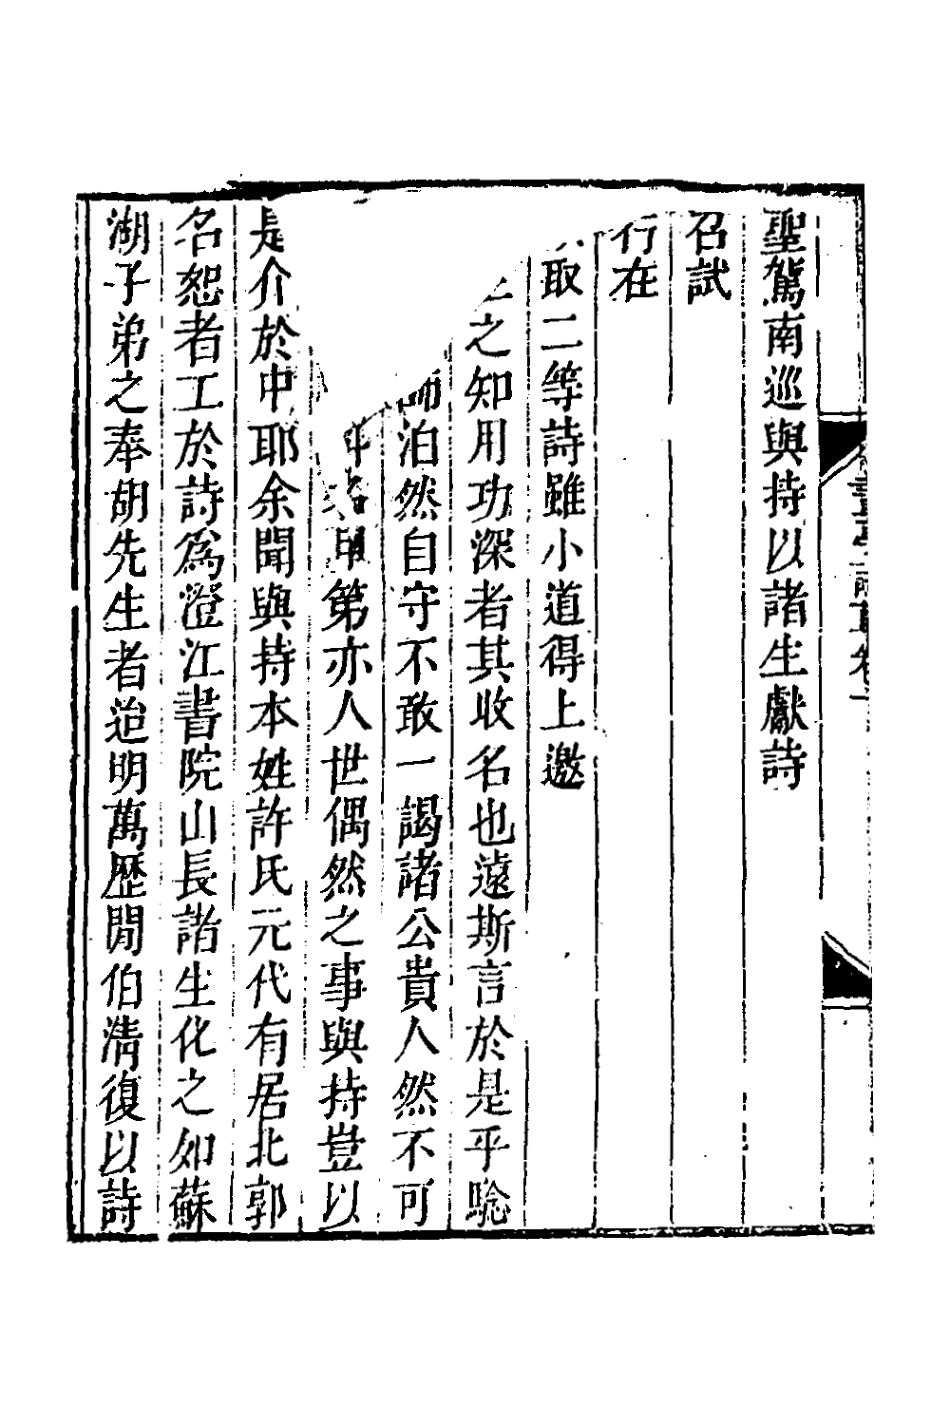 聖駕南巡與持以諸生獻詩
召試
行在
取二等詩雖小道得上邀
之知用功深者其收名也遠斯言於是乎騐
師泊然自守不敢一謁諸公貴人然不可
第亦人世偶然之事與持豈以
是介於中耶余聞與持本姓許氏元代有居北郭
名恕者工於詩爲澄江書院山長諸生化之如蘇
湖子弟之奉胡先生者迨明萬歷閒伯清復以詩